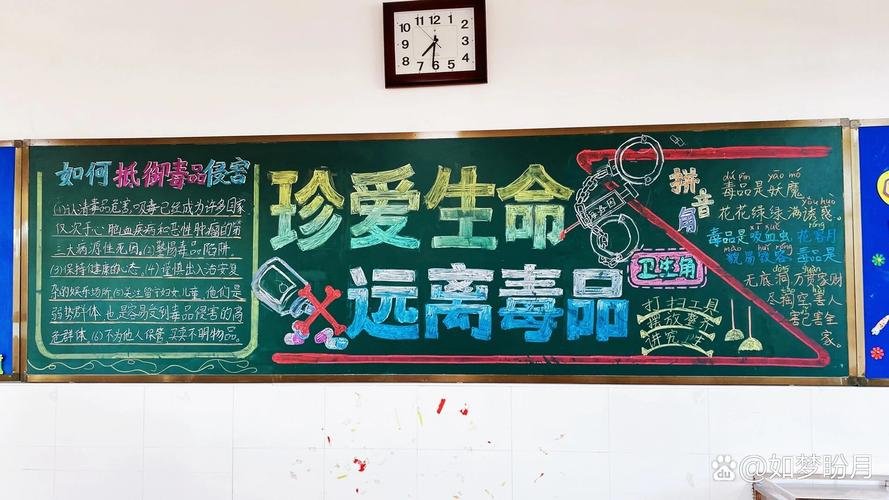 12
11
1
10
2
9
3
8
4
7
5
6
如何抵御毒品侵害
(1)认清毒品危害,吸毒已经成为许多国家
仅次于心脑血疾病和恶性肿瘤的第
三大病源性死因。(2)警惕毒品陷阱。
(3)保持健康的心态。(4)谨慎出入治安复
杂的娱乐场所(5)关注留守妇女儿童,他们是
弱势群体,也是容易受到毒品侵害的高
危群体。(6)不为他人保管、买卖不明物品。
珍爱生命
远离毒品
拼音角
dú pǐn yāo mó
毒品是妖魔,
yòu huò
花花绿绿满诱惑。
xī xuè
毒品是吸血虫,花容月
mào huǐ róng
貌易毁容。毒品是
dòng
无底洞,万贯家财
尽掏空。害人
害己害全
家。
卫生角
打扫工具
摆放整齐
讲究卫生
Bai du 百科 @如梦盼月